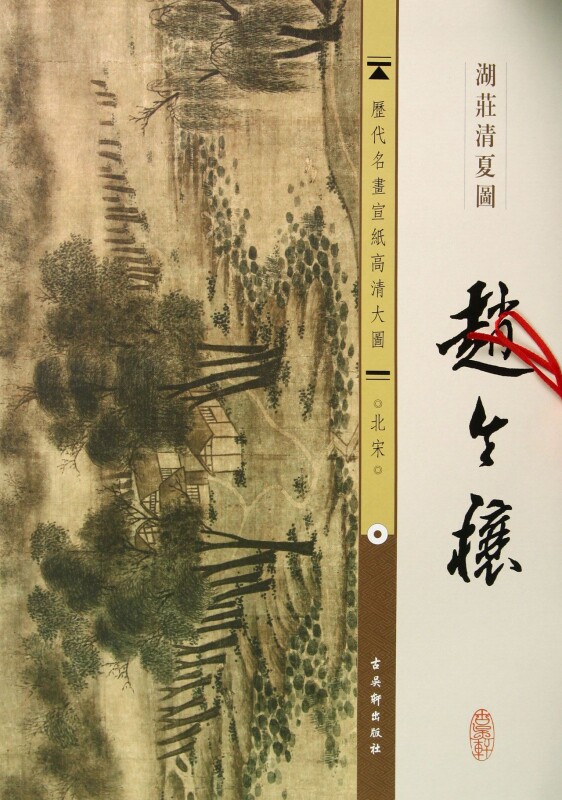 湖莊清夏圖
趙令穰
歷代名畫宣紙高清大圖
◎北宋◎
古吳軒出版社
古吳軒